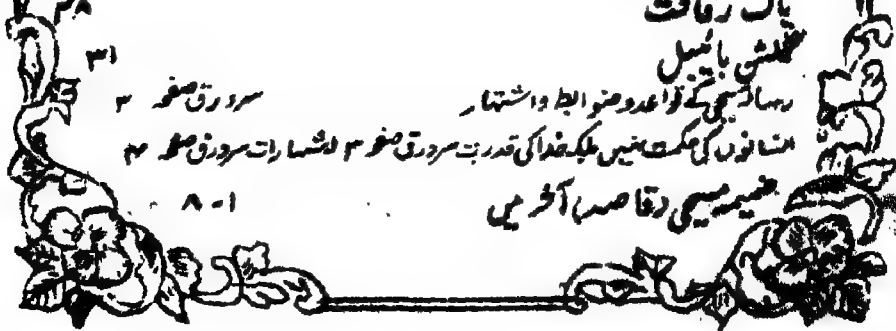 پاک رفاقت ۲۸
گلشن بائیبل ۳۱
رسالہ مسیحی کے قواعد و ضوابط و اشتہار سرورق صفحہ ۲
انسانوں کی حکمت نہیں بلکہ خدا کی قدرت سرورق صفحہ ۳ اشتہارات سرورق صفحہ ۴
ضمیمہ مسیحی (قاصد) آخر میں ۱-۸